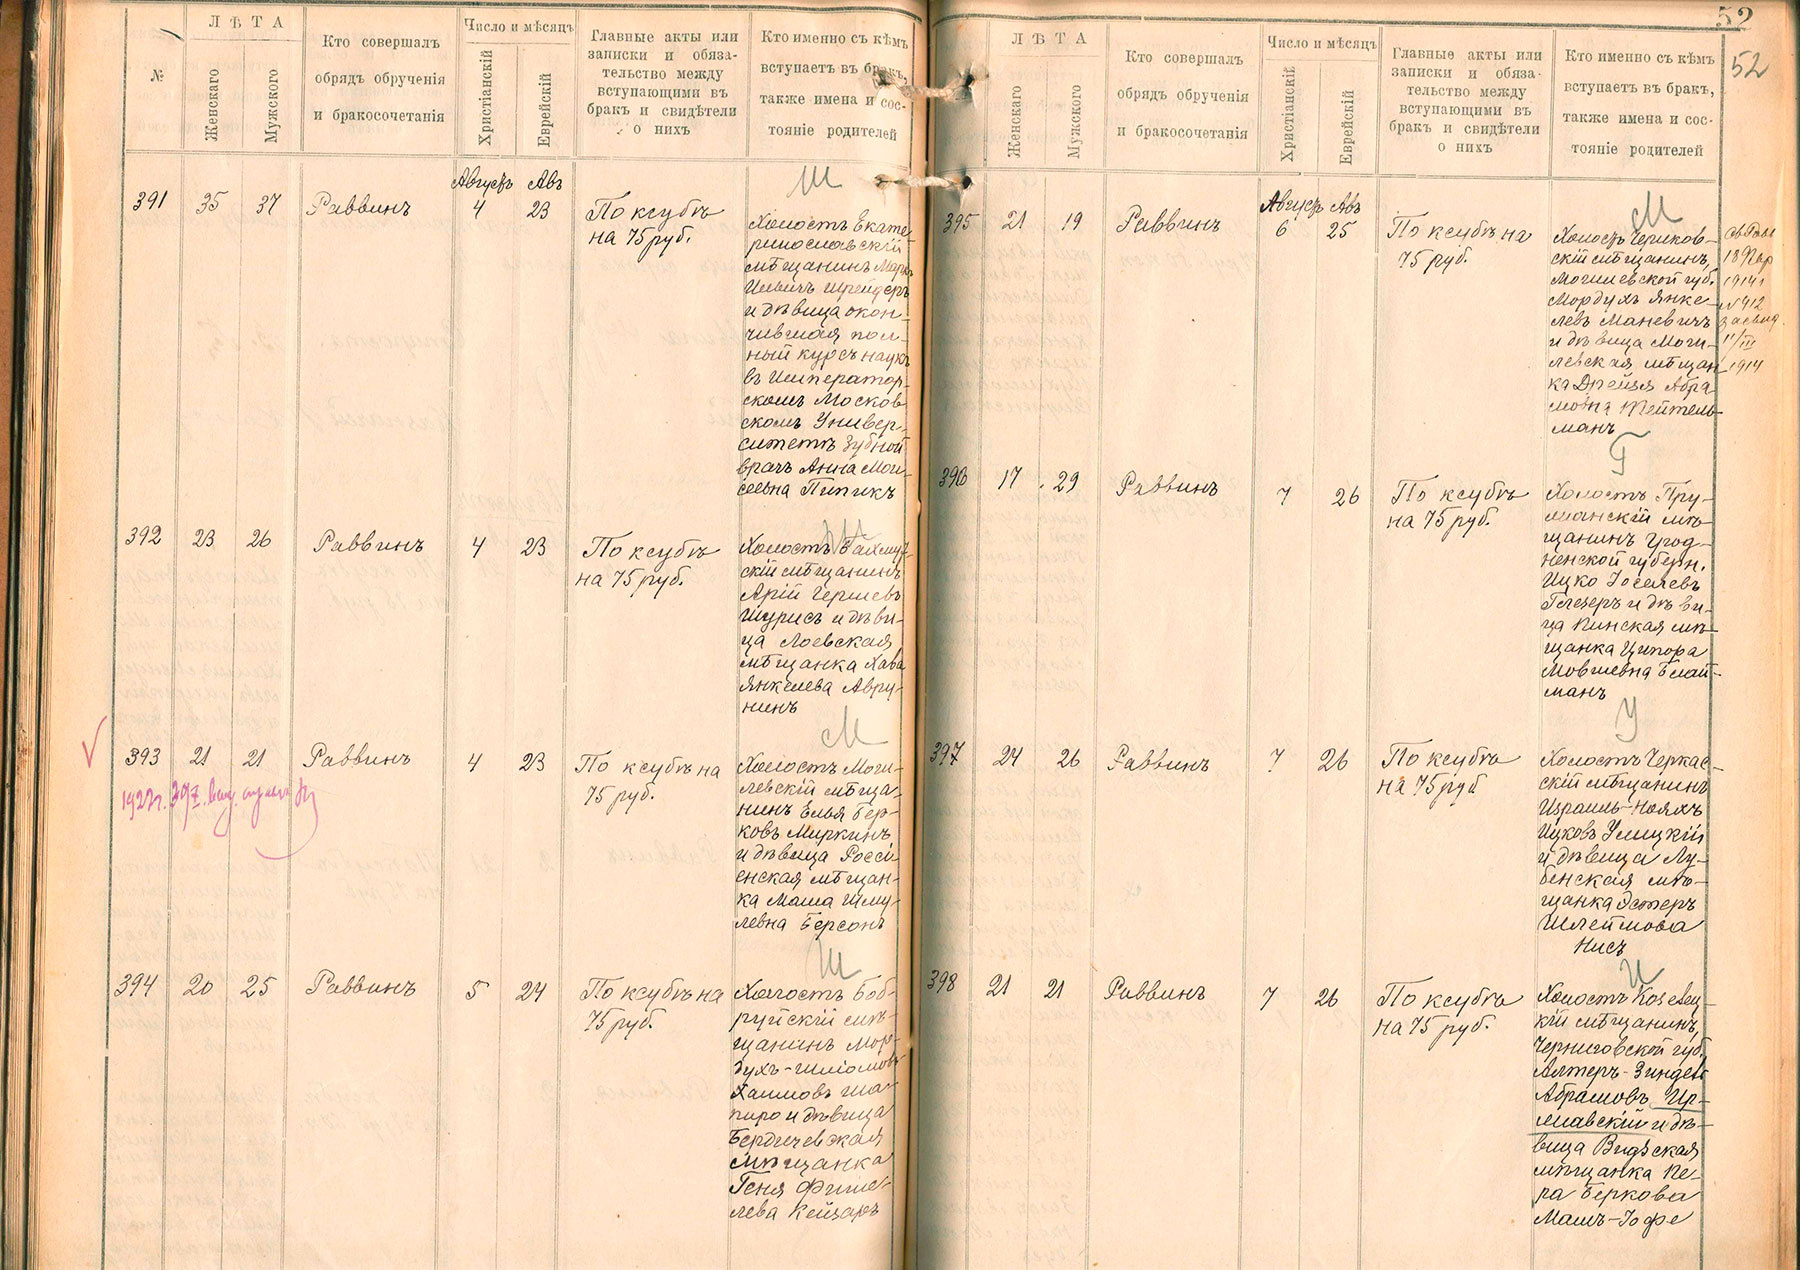 №
ЛѢТА
Женскаго
Мужского
Кто совершалъ
обрядъ обрученія
и бракосочетанія
Число и мѣсяцъ
Христіанскій
Еврейскій
Главные акты или
записки и обяза-
тельство между
вступающими въ
бракъ и свидѣтели
о нихъ
Кто именно съ кѣмъ
вступаетъ въ бракъ,
также имена и сос-
тояніе родителей
Августъ Авъ
Ш
391 35 37 Раввинъ 4 23 По ксубѣ
на 75 руб.
Холостъ Екате-
ринославскій
мѣщанинъ Маркъ
Шрейдеръ
и дѣвица окон-
чившая пол-
ный курсъ наукъ
въ Император-
скомъ Москов-
скомъ Универ-
ситетѣ зубной
врачъ Анна Мои-
сеевна Пипикъ
392 23 26 Раввинъ 4 23 По ксубѣ
на 75 руб.
Холостъ Бахмут-
скій мѣщанинъ
Арій Гершевъ
Шурисъ и дѣви-
ца Лоевская
мѣщанка Хава
Янкелева Авру-
нинъ
М
393 21 21 Раввинъ 4 23 По ксубѣ на
75 руб.
1927г.
Холостъ Моги-
левскій мѣща-
нинъ Елья Бер-
ковъ Миркинъ
и дѣвица Россі-
енская мѣщан-
ка Маша Шму-
левна Берсонъ
Ш
394 20 25 Раввинъ 5 24 По ксубѣ на
75 руб.
Холостъ Боб-
руйскій мѣ-
щанинъ Мор-
духъ-Шломовъ
Хаимовъ Ша-
пиро и дѣвица
Бердичевская
мѣщанка
Геня Фише-
лева Кейзеръ
52
52
ЛѢТА
Женскаго
Мужского
Кто совершалъ
обрядъ обрученія
и бракосочетанія
Число и мѣсяцъ
Христіанскій
Еврейскій
Главные акты или
записки и обяза-
тельство между
вступающими въ
бракъ и свидѣтели
о нихъ
Кто именно съ кѣмъ
вступаетъ въ бракъ,
также имена и сос-
тояніе родителей
Августъ Авъ
М
395 21 19 Раввинъ 6 25 По ксубѣ на
75 руб.
Холостъ Чериков-
скій мѣщанинъ,
Могилевской губ.
Мордухъ Янке-
левъ Маневичъ
и дѣвица Моги-
левская мѣщан-
ка Дрейзя Абра-
мовна Тейтель-
манъ
1914г
№ 412
11/III
1914
Г
396 17 29 Раввинъ 7 26 По ксубѣ
на 75 руб.
Холостъ Пру-
жанскій мѣ-
щанинъ Грод-
ненской губерн.
Ицко Іоселевъ
Глезеръ и дѣви-
ца Пинская мѣ-
щанка Ципора
Мовшевна Блай-
манъ
У
397 24 26 Раввинъ 7 26 По ксубѣ
на 75 руб
Холостъ Черкас-
скій мѣщанинъ
Израиль-Нояхъ
Ицковъ Улицкій
и дѣвица Лу-
бенская мѣ-
щанка Эстеръ
Шлеймова
Нисъ
И
398 21 21 Раввинъ 7 26 По ксубѣ
на 75 руб.
Холостъ Козелец-
кій мѣщанинъ,
Черниговской губ.
Алтеръ-Зундель
Абрамовъ Ир-
млавскій и дѣ-
вица Видзская
мѣщанка Пе-
ра Беркова
Машъ-Іофе